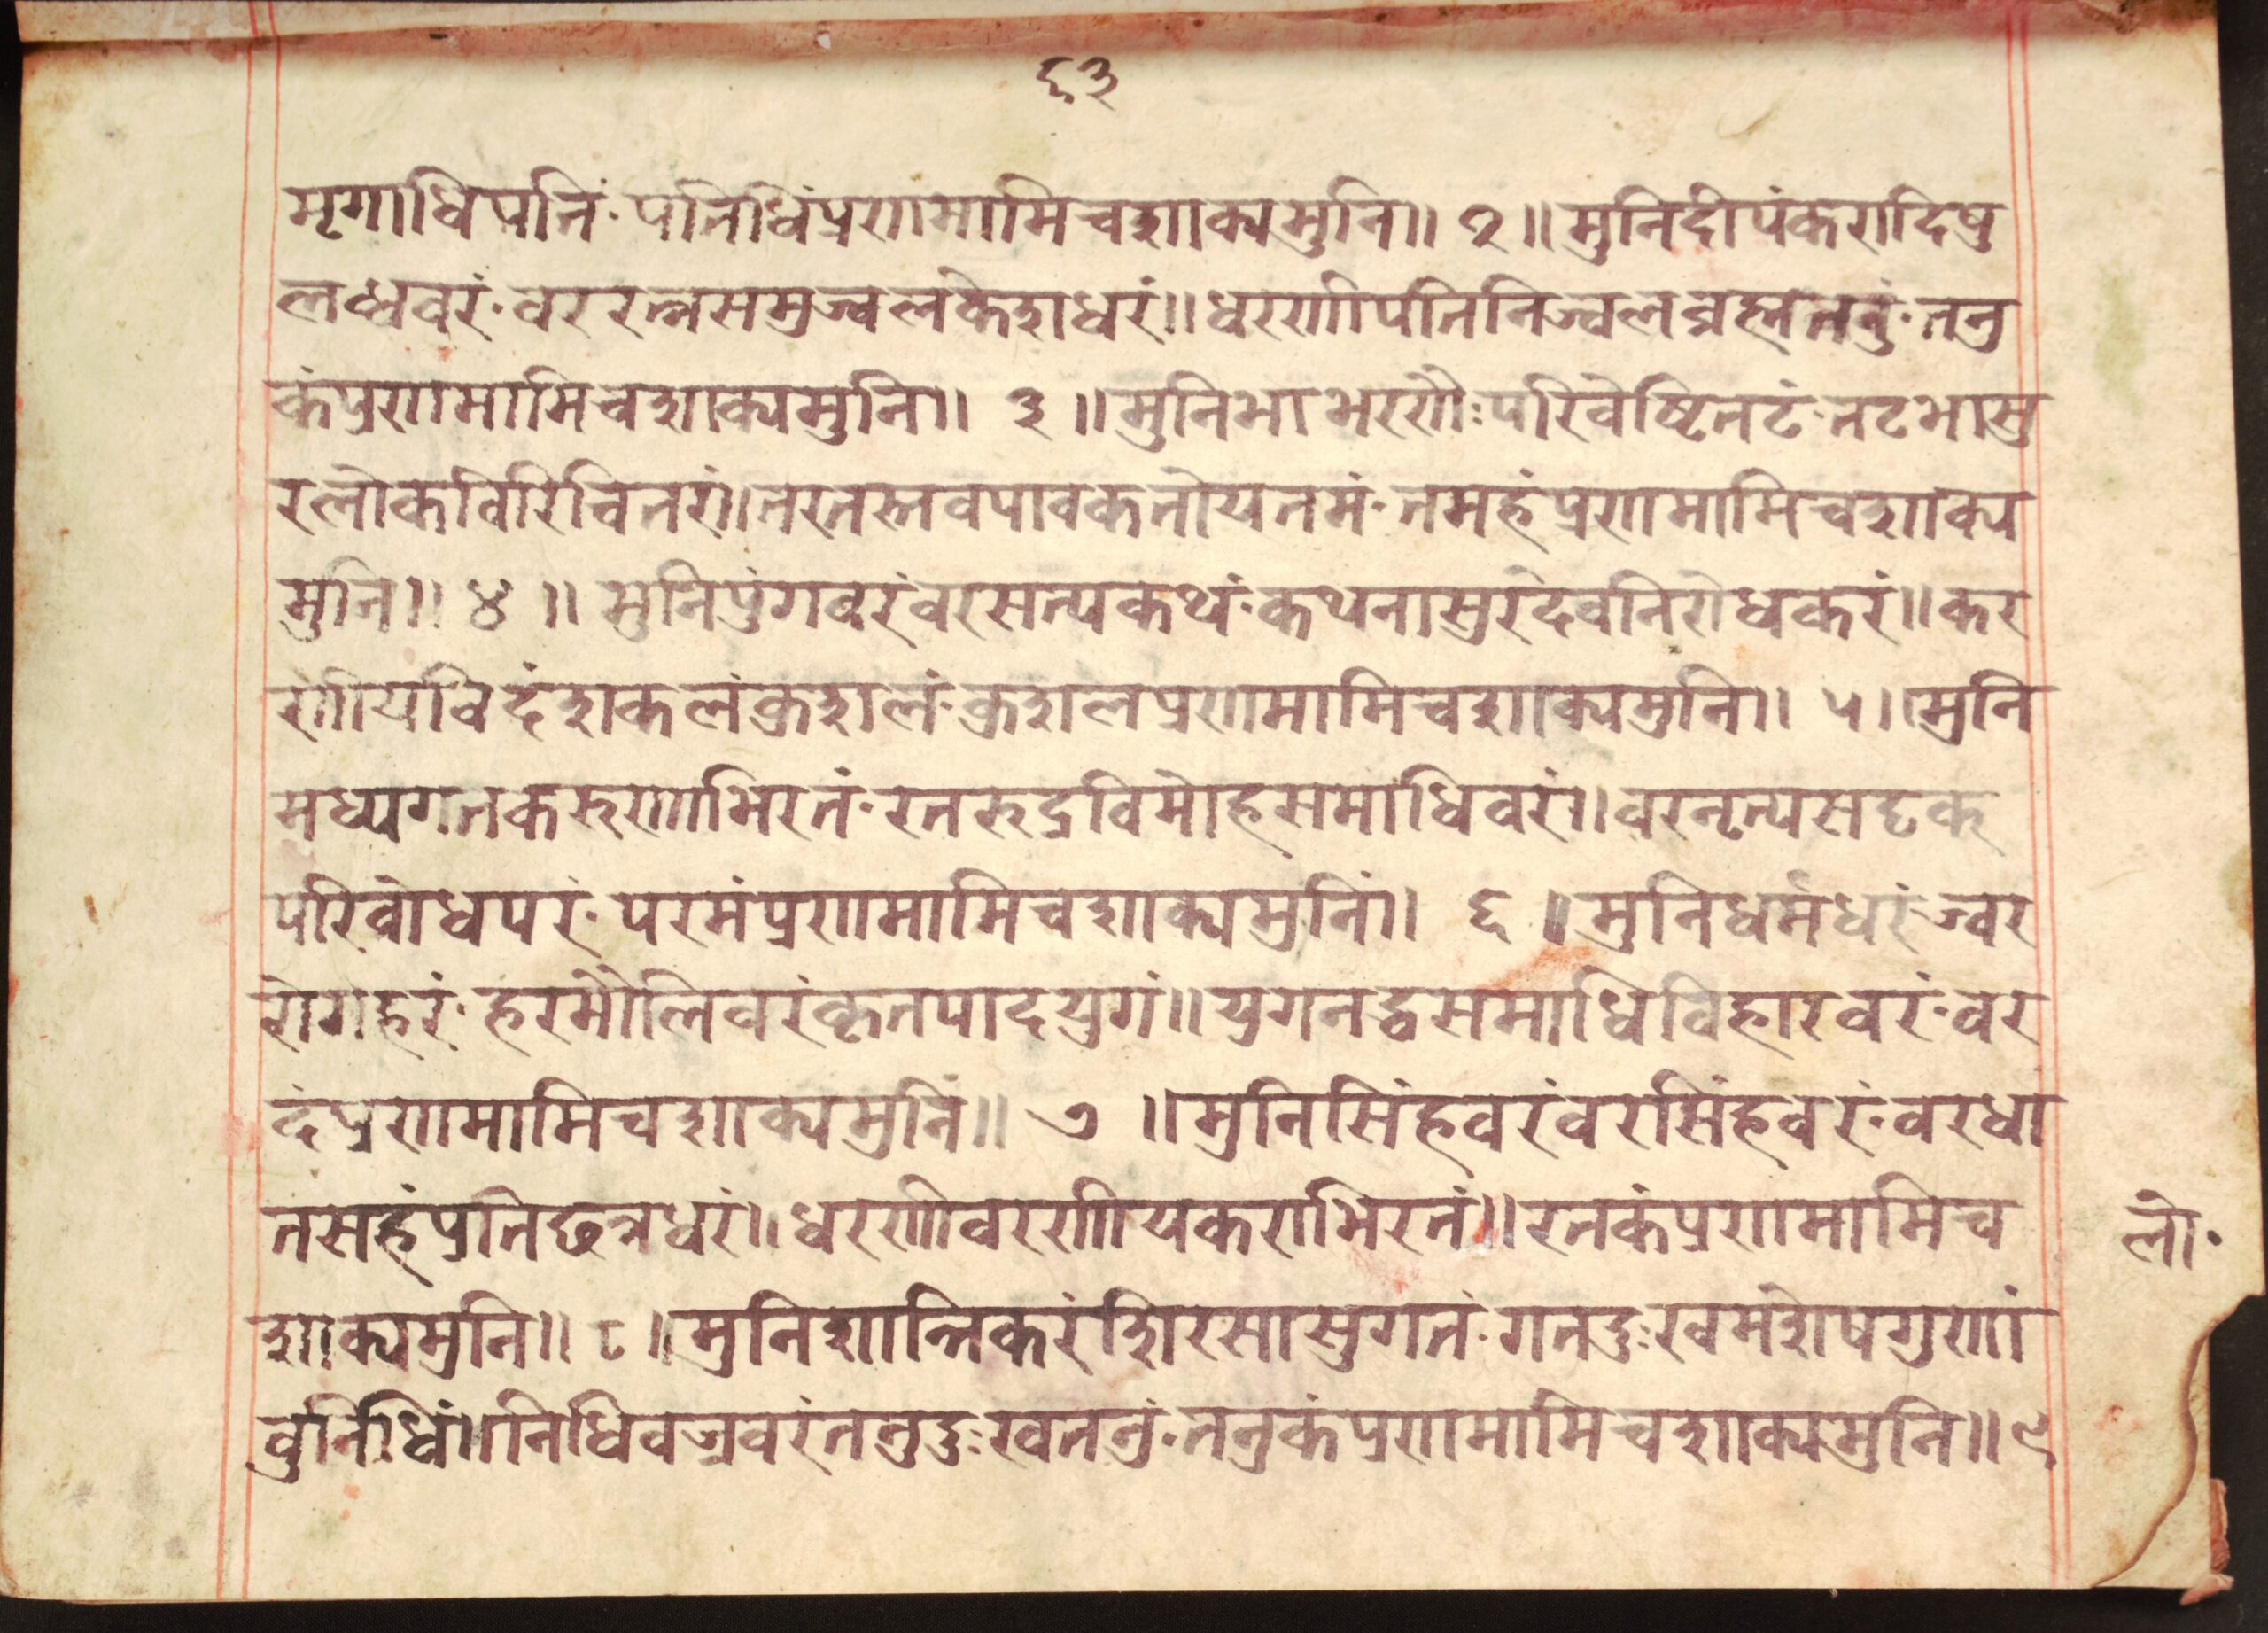 ६३
मृगाधिपतिं॰पतिधिंप्रणमामिचशाक्यमुनि॥ २ ॥मुनिदीपंकरादिषु
लब्धवरं॰वररत्नसमुज्वलकेशधरं॥धरणीपतिनिज्वलब्रह्मतनुं॰तनु
कंप्रणमामिचशाक्यमुनि॥ ३ ॥मुनिभाभरणैःपरिवेष्टितटं॰नटभासु
रलोकविरिंचिनरं।नरनरूनवपावकतोयतमं॰तमहंप्रणमामिचशाक्य
मुनि॥ ४ ॥ मुनिपुंगवरंवरसत्यकथं॰कथनासुरदेवनिरोधकरं॥कर
णीयविदंशकलंक्रशलं॰क्रशलप्रणमामिचशाक्यमुनि॥ ५॥मुनि
मध्यगतकरुणाभिरतं॰रतरुद्रविमोहसमाधिवरं॥वरनृत्यसदृक
परिवोधपरं॰परमंप्रणमामिचशाक्यमुनिं। ६ ॥मुनिधर्मधरंज्वर
रोगहरं॰हरमौलिवरंकृतपादयुगं॥युगनद्धसमाधिविहारवरं॰वर
दंप्रणमामिचशाक्यमुनिं॥ ७ ॥मुनिसिंहवरंवरसिंहवरं॰वरधा
तसहंप्रतिछत्रधरं॥धरणीवरणीयकराभिरतं॥रतकंप्रणमामिच
शाक्यमुनि॥ ८॥मुनिशान्तिकरंशिरसासुगतं॰गतदुःखमशेषगुणां
वुनिधिं॥निधिवज्रवरंतनुदुःखतनुं॰तनुकंप्रणमामिचशाक्यमुनि॥९
लो॰